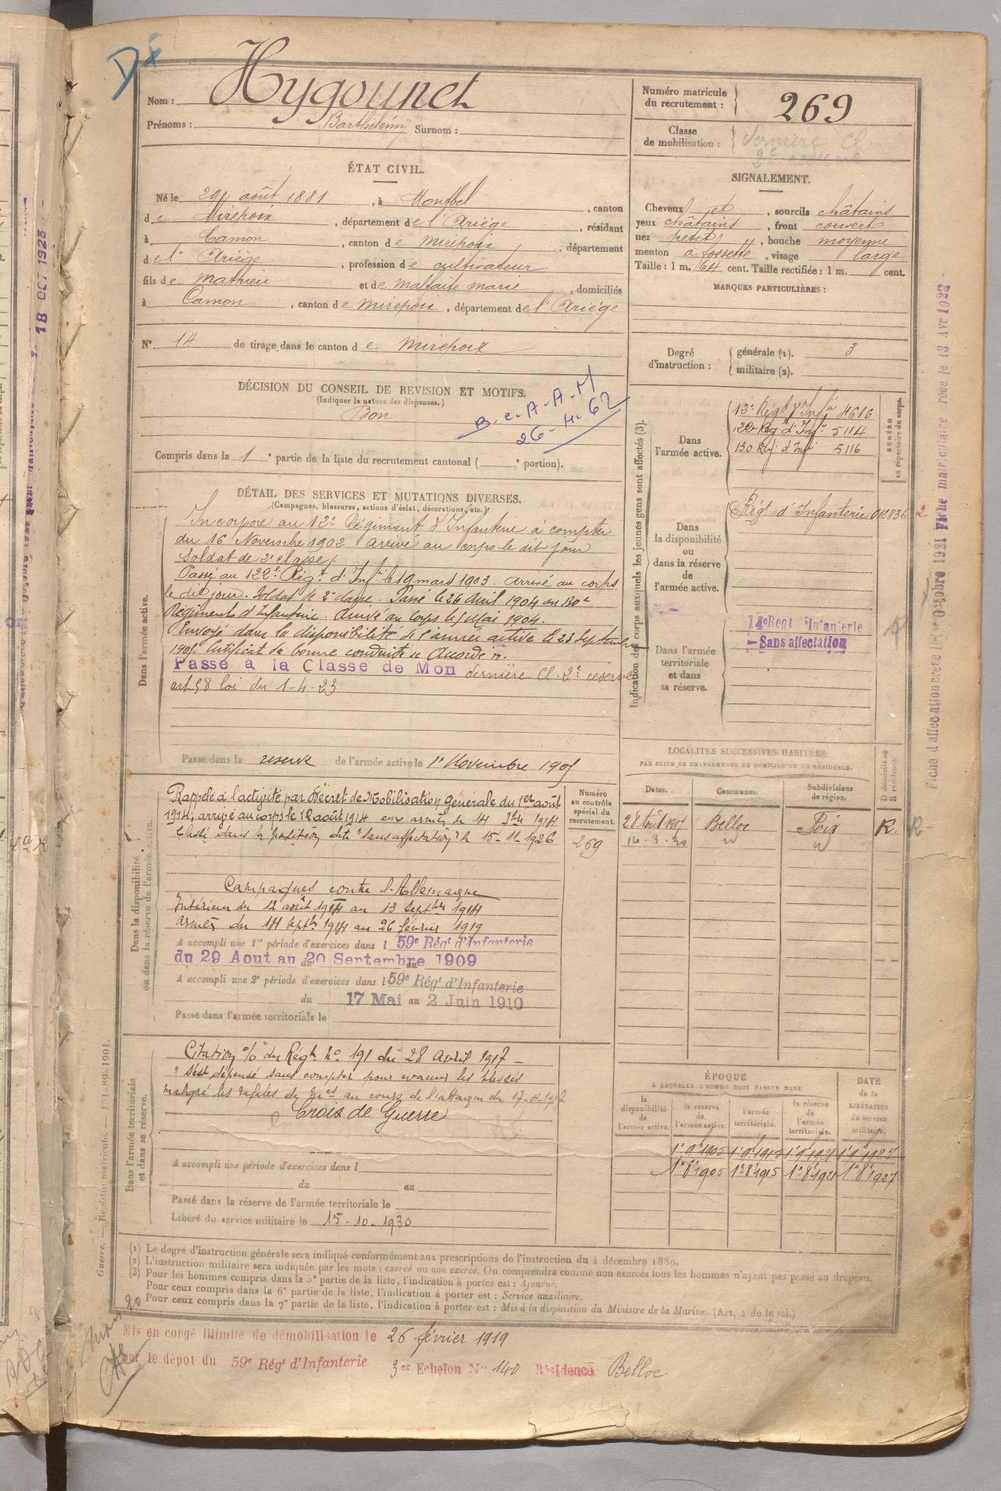 Nom : Hygounet
Prénoms : Barthélemy Surnom :
Numéro matricule du recrutement : 269
Classe de mobilisation :
ÉTAT CIVIL.
Né le août 1881, à Montbel, canton
de Mirepoix, département de l'Ariège, résidant
à Camon, canton de Mirepoix, département
de l'Ariège, profession de cultivateur
fils de Mathieu et de marie, domiciliés
à Camon, canton de Mirepoix, département de l'Ariège
N° 14 de tirage dans le canton de Mirepoix
SIGNALEMENT.
Cheveux et, sourcils châtains
yeux châtains, front couvert
nez petit, bouche moyenne
menton à fossette, visage large
Taille : 1 m. 64 cent. Taille rectifiée : 1 m. cent.
MARQUES PARTICULIÈRES :
Degré d'instruction : générale (1). 3
militaire (2).
DÉCISION DU CONSEIL DE REVISION ET MOTIFS.
(Indiquer la nature des dispenses.)
Bon
B.C.A.A.M
26-4-62
Compris dans la 1e partie de la liste du recrutement cantonal ( e portion).
DÉTAIL DES SERVICES ET MUTATIONS DIVERSES.
(Campagnes, blessures, actions d'éclat, décorations, etc.)
Dans l'armée active.
Incorporé au 12e Régiment d'Infanterie à compter
du 16 Novembre 1902 arrivé au corps le dit jour
Soldat de 2e classe.
Passé au 122e Régt d'Infie le 19 mars 1903. Arrivé au corps
le dit jour. Soldat de 2e classe. Passé le 26 Avril 1904 au 130e
Régiment d'Infanterie. Arrivé au corps le 1er Mai 1904.
Envoyé dans la disponibilité de l'armée active le 23 Septembre
1905 Certificat de bonne conduite « Accordé ».
Passé à la Classe de Mon dernière Cl. 2e réserve
art 58 loi du 1-4-23
Passé dans la réserve de l'armée active le 1er Novembre 1905
Indication des corps auxquels les jeunes gens sont affectés (3).
NUMÉRO au répertoire du corps.
Dans l'armée active.
12e Régt d'Infie 4616
122e Régt d'Infie 5114
130 Régt d'Infie 5116
Dans la disponibilité ou dans la réserve de l'armée active.
Régt d'Infanterie
Dans l'armée territoriale et dans sa réserve.
14e Régt d'Infanterie
Sans affectation
Dans la disponibilité ou dans la réserve de l'armée active.
Rappelé à l'activité par Décret de Mobilisation Générale du 1er août
1914, arrivé au corps le 12 août 1914 aux armées le 14 7bre 1914
Classé dans la position dite "sans affectation" le 15-11-1926
Campagnes contre l'Allemagne
Intérieur du 12 août 1914 au 13 Septbre 1914
Armées du 14 Septbre 1914 au 26 février 1919
A accompli une 1re période d'exercices dans l 59e Régt d'Infanterie
du 29 Aout au 20 Septembre 1909
A accompli une 2e période d'exercices dans l 59e Régt d'Infanterie
du 17 Mai au 2 Juin 1910
Passé dans l'armée territoriale le
Numéro au contrôle spécial du recrutement.
269
LOCALITÉS SUCCESSIVES HABITÉES
PAR SUITE DE CHANGEMENTS DE DOMICILE OU DE RÉSIDENCE.
Dates. Communes. Subdivisions de région. D. domicile ou R. résidence.
28 Août 1907 Belloc Foix R.
Dans l'armée territoriale et dans sa réserve.
Citation % du Régt N° 191 du 28 Avril 1917 -
"S'est dépensé sans compter pour évacuer les blessés
malgré les rafales de mies au cours de l'attaque du 17-4-1917
Croix de Guerre
A accompli une période d'exercices dans l
du au
Passé dans la réserve de l'armée territoriale le
Libéré du service militaire le 15-10-1930
ÉPOQUE
À LAQUELLE L'HOMME DOIT PASSER DANS
la disponibilité de l'armée active. la réserve de l'armée active. l'armée territoriale. la réserve de l'armée territoriale.
DATE de la LIBÉRATION du service militaire.
(1) Le degré d'instruction générale sera indiqué conformément aux prescriptions de l'instruction du 4 décembre 1889.
(2) L'instruction militaire sera indiquée par les mots : exercé ou non exercé. On comprendra comme non exercés tous les hommes n'ayant pas passé au drapeau.
(3) Pour les hommes compris dans la 5e partie de la liste, l'indication à porter est : Ajourné.
Pour ceux compris dans la 6e partie de la liste, l'indication à porter est : Service auxiliaire.
Pour ceux compris dans la 7e partie de la liste, l'indication à porter est : Mis à la disposition du Ministre de la Marine. (Art. 4 de la loi.)
Mis en congé illimité de démobilisation le 26 février 1919
par le dépôt du 59e Régt d'Infanterie 3e Echelon N° 140 Résidence Belloc
18 OCT 1923